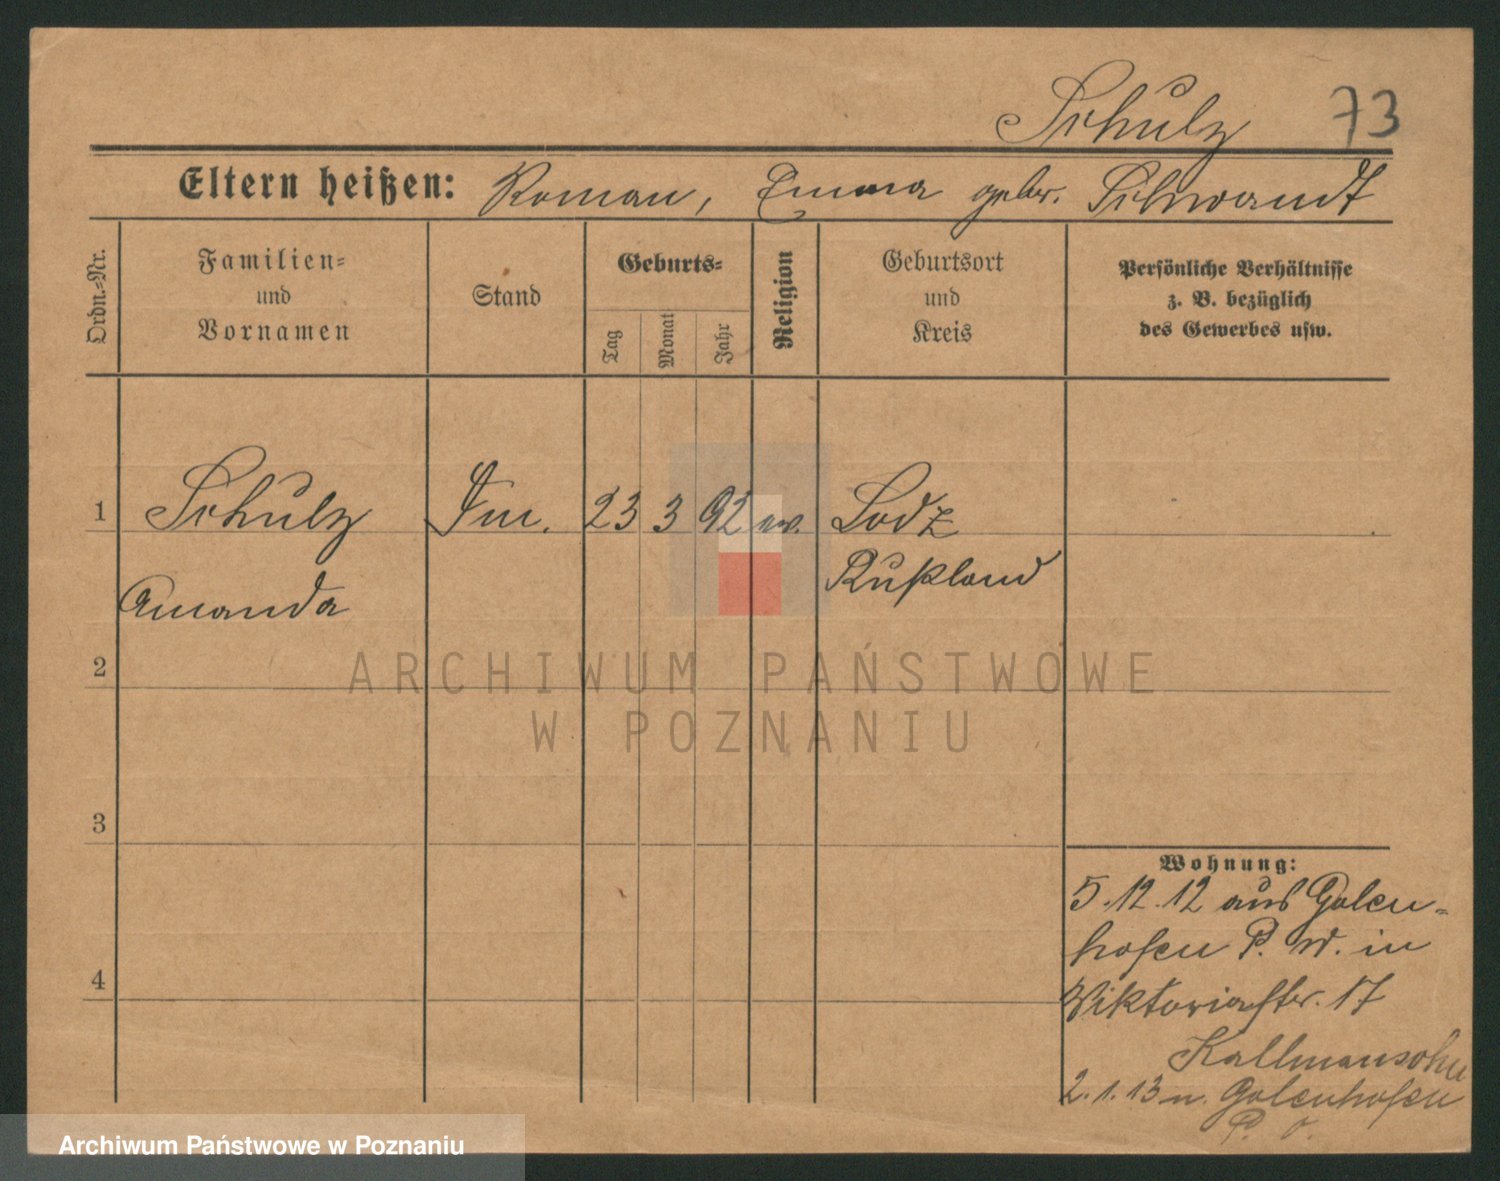 Schulz 73
Eltern heißen: Roman, Emma gebr. Schwandt
Ordn.-Nr.
Familien-
und
Vornamen
Stand
Geburts-
Tag
Monat
Jahr
Religion
Geburtsort
und
Kreis
Persönliche Verhältnisse
z. B. bezüglich
des Gewerbes usw.
1 Schulz 23 3 92 ev. Lodz
Amanda Rußland
2
3
4
Wohnung:
5.12.12 aus Golen-
hofen P. W. in
Viktoriastr. 17
Kallmansohn
2.1.13 n. Golenhofen
P. O.
ARCHIWUM PAŃSTWOWE
W POZNANIU
Archiwum Państwowe w Poznaniu